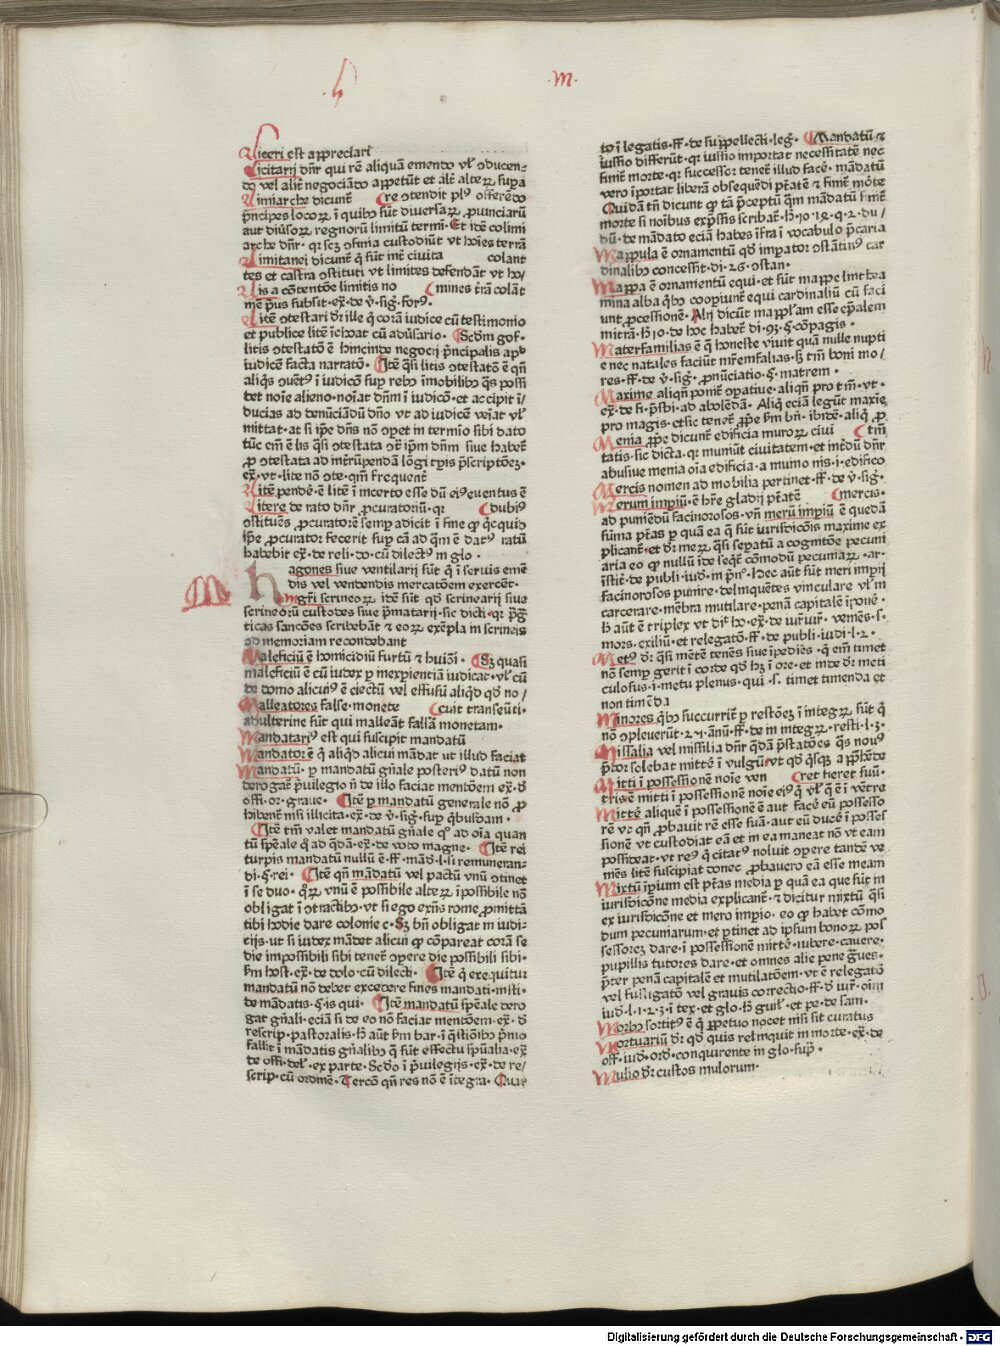 .h
.M.
Liceri est appreciari
Licitarij dñr qui rē aliquā emendo vľ ɔducen-
do vel aliť negociādo appetūt et alť alteꝝ supra
Limiarche dicunť ¶ re ɔtendit plꝰ offerēdo
pͥncipes locoꝝ ī quibꝰ sūt diuersaꝝ ꝓuinciarū
aut diuſoꝝ regnorū limitū termī. Et idē colimi
arche dñr. qꝛ scꝫ ɔfinia custodiūt vt hoīes terrā
Limitanei dicunť q̄ sūt inť ciuita colant
tes et castra ɔstituti vt limites defendāt vt ho/
Lis a cōtentōe limitis no ¶ mines trā colāt
mē pͥus subsit. eẋ. de ꝟ. sig. forꝰ.
Litē ɔtestari dr̄ ille q̄ corā iudice cū testimonio
et publice litē īchoat cū aduſario. ¶ Scdm gof.
litis ɔtestatō ē hincinde negocij pͥncipalis apd
iudicē facta narratō. ¶ Itē qͣsi litis ɔtestatō ē qn̄
aliqͥs ɔuētꝰ ī iudicō sup rebꝰ īmobilibꝰ qͣs possi
det noīe alieno. noīat dnm ī iudicō. et accipit ī/
ducias ad denūciādū dn̄o vt ad iudicē veīat vľ
mittat. at si ipē dn̄s nō ɔpet in termīo sibi dato
tūc em̄ ē lis qͣsi ɔtestata
ꝓ ɔtestata ad inťrūpendā lōgi tꝑis pͣscriptōeꝫ.
eẋ. vt lite nō ɔte. qm̄ frequenť
Litē pendē. ē litē ī incerto esse dū eiꝰ euentus ē
Litere de rato dn̄r ꝓcuratoriū. qꝛ ¶ dubiꝰ
ɔstituēs ꝓcuratorē semꝑ adicit ī fine ꝙ qͥcquid
ipē ꝓcurator fecerit sup cā ad qͣm ē datꝰ ratū
habebit eẋ. de reli. do. cū dilectꝰ in glo.
M
agones siue ventilarij sūt q̄ ī seruis emē
dis vel vendendis mercatōem exercēt.
Mgr̄i scrineoꝝ idē sūt qd scrinearij siue
scrineorū custodes siue pͥmatarij. sic dicti. qꝛ pͣg̃
ticas sancōes scribebāt ⁊ eoꝝ exēpla in scrineis
ad memoriam recondebant
Maleficiū ē homicidiū furtū ⁊ huiōi. ¶ Sꝫ quasi
maleficiū ē cū iudex ꝑ inexpientiā iudicat. vľ cū
de domo alicuiꝰ ē eiectū vel effusū aliqͥd qd no/
Malleatores false. monete ¶ cuit transeūti.
adulterine sūt qui malleāt fallā monetam.
Mandatariꝰ est qui suscipit mandatū
Mandator ē q̄ aliqͥd alicui mādat vt illud faciat
Mandatū. ꝑ mandatū gn̄ale posteriꝰ datū non
derogať pͥuilegio n̄ de illo faciat mentōem eẋ. d̄
offi. or. graue. ¶ Itē ꝑ mandatū generale nō ꝓ
hibenť nisi illicita. eẋ. de ꝟ. sig. sup qͥbusdam.
¶ Itē tm̄ valet mandatū gn̄ale qͦ ad oīa quan
tū spēale qͦ ad qͣdā. eẋ. de voto magne. ¶ Itē rei
turpis mandatū nullū ē. ff. mād. l. si remuneran-
di. §. rei. ¶ Itē qn̄ mādatū vel pactū vnū ɔtinet
ī se duo. qͦꝝ vnū ē possibile alteꝝ īpossibile nō
obligat ī ɔtractibꝰ. vt si ego exn̄s rome ꝓmittā
tibi hodie dare colonie c. Sꝫ bn̄ obligat in iudi-
cijs. ut si iudex mādet alicui ꝙ cōpareat corā se
die impossibili sibi teneť ɔpere die possibili sibi.
sm̄ host. eẋ. de dolo. cū dilecti. ¶ Itē q̄ exequitur
mandatū nō debet excedere fines mandati. insti.
de mādatis. §. is qui. ¶ Itē mandatū spēale dero
gat gn̄ali. eciā si de eo nō faciat mentōem. eẋ. d̄
rescrip. pastoralis. H̄ aūt sm̄ bar. ī qͣstiōibꝰ pͥmo
fallit ī mādatis gn̄alibꝰ q̄ sūt effectu spūalia. eẋ
de offi. del. ex parte. Scdo ī pͥuilegijs. eẋ. de re/
scrip. cū ordinē. Tercō qn̄ res nō ē ītegra.
to ī legatis. ff. de suppellecti. leg. ¶ Mandatū ⁊
iussio differūt. qꝛ iussio importat necessitatē nec
finiť morte. qꝛ successor teneť illud facē. mādatū
vero īportat liberā obsequēdi ptātē ⁊ finiť mōte
Quidā tn̄ dicunt ꝙ tā pͣceptū qͣm mādatū finiť
morte si noībus expssis scribať.
de mādato eciā habes īfra ī vocabulo pͣcaria
Mappula ē ornamentū qd impator ɔstātinꝰ car
dinalibꝰ concessit. di. 26. ɔstan.
Mappa ē ornamentū equi. et sūt mappe lintea
mina alba qͥbꝰ coopiunť equi cardinaliū cū faci
unt ꝓcessionē. Alij dicūt mappľam esse epalem
mitrā. H̄ ꝫo. de hoc habeť di. 93. §. cōpagis.
Materfamilias ē q̄ honeste viuit quā nulle nupti
e nec natales faciūt mr̄emfalias. ꝫ tm̄ boni mo/
res. ff. de ꝟ. sig. ꝓnūciatio. §. matrem.
Maxime aliqn̄ poniť ɔpatiue. aliqn̄ pro tm̄. vt.
eẋ. de fi. pͥsbi. ad abolēdā. Aliqͥ eciā legūt maxie
pro magis.
Menia ꝓpe dicunť edificia muroꝝ ciui ¶ tm̄
tatis. sic dicta. qꝛ muniūt ciuitatem. et inťdū dn̄r
abusiue menia oīa edificia. a munio nis. i. edifico
Mercis nomen ad mobilia pertinet. ff. de ꝟ. sig.
Merum impiū. ē hr̄e gladij ptātē ¶ mercis.
ad puniēdū facinorosos. vn̄ merū impiū ē quedā
sūma ptās ꝑ quā ea q̄ sūt iurisdicōis maxime ex
plicanť. et dr̄ meꝝ qͣsi sepatū a cognitōe pecuni
aria eo ꝙ nullū īde seqͥť cōmodū pecuniaꝝ. ar.
īstiť. de publi. iud. in pͥnͦ. Hec aūt sūt meri impij
facinorosos punire. delinquētes vinculare vľ in
carcerare. mēbra mutilare. penā capitalē īponē.
H̄ aūt ē triplex vt dič ho. eẋ. de iur̄iur̄. venies. s.
mors. exiliū. et relegatō. ff. de publi. iudi. l. 2.
Metꝰ dr̄. qͣsi mētē tenēs siue īpediēs. q̄ em̄ timet
nō semꝑ gerit ī corde qd hꝫ ī ore. et inde dr̄ meti
culosus. i. metu plenus. qui. s. timet timenda et
non timēda
Minores qͥbꝰ succurriť ꝑ restōeꝫ ī integꝝ sūt q̄
nō ɔpleuerūt. 2 ⁊. annū. ff. de in integꝝ. resti. l. 3.
Missalia vel missilia dn̄r qͣdā pͣstatōes qͣs nouꝰ
pͣtor solebat mittē ī vulgū. vt qd qͥsqꝫ apphēde
Mitti ī possessionē noīe ven ¶ ret heret suū.
tris ē mitti ī possessionē noīe eiꝰ q̄ vľ q̄ ē ī vētre
Mittē aliquē ī possessionē ē aut facē eū possesso
rē vꝫ qn̄ ꝓbauit rē esse suā. aut eū ducē ī posses
sionē vt custodiat eā et in ea maneat nō vt eam
possideat. vt reꝰ q̄ citatꝰ noluit ɔpere tandē ve
niēs litē suscipiat donec ꝓbauero eā esse meam
Mixtū īpium est ptās media ꝑ quā ea que sūt in
iurisdicōne media explicanť. ⁊ dicitur mixtū qͣsi
ex iurisdicōne et mero impio. eo ꝙ habet cōmo
dum pecuniarum. et ptinet ad ipsum bonoꝝ pos
sessoreꝫ dare. ī possessionē mittē. iubere. cauere.
pupillis tutores dare. et omnes alie pene gͣues.
pͣter penā capitalē et mutilatōem. vt ē relegatō
vel fustigatō vel grauis correctio. ff. d̄ iur̄. oīm
iud. l. 1. 2. 3. ī tex. et glo. H̄ guil. et pe. de sam.
Morbꝰ sortitꝰ ē q̄ ꝑpetuo nocet nisi sit curatus
Mortuariū dr̄. qd quis relinquit in morte. eẋ. de
off. iud. ord. conqurente in glo. sup.
Mulio dr̄ custos mulorum.
Digitalisierung gefördert durch die Deutsche Forschungsgemeinschaft - DFG